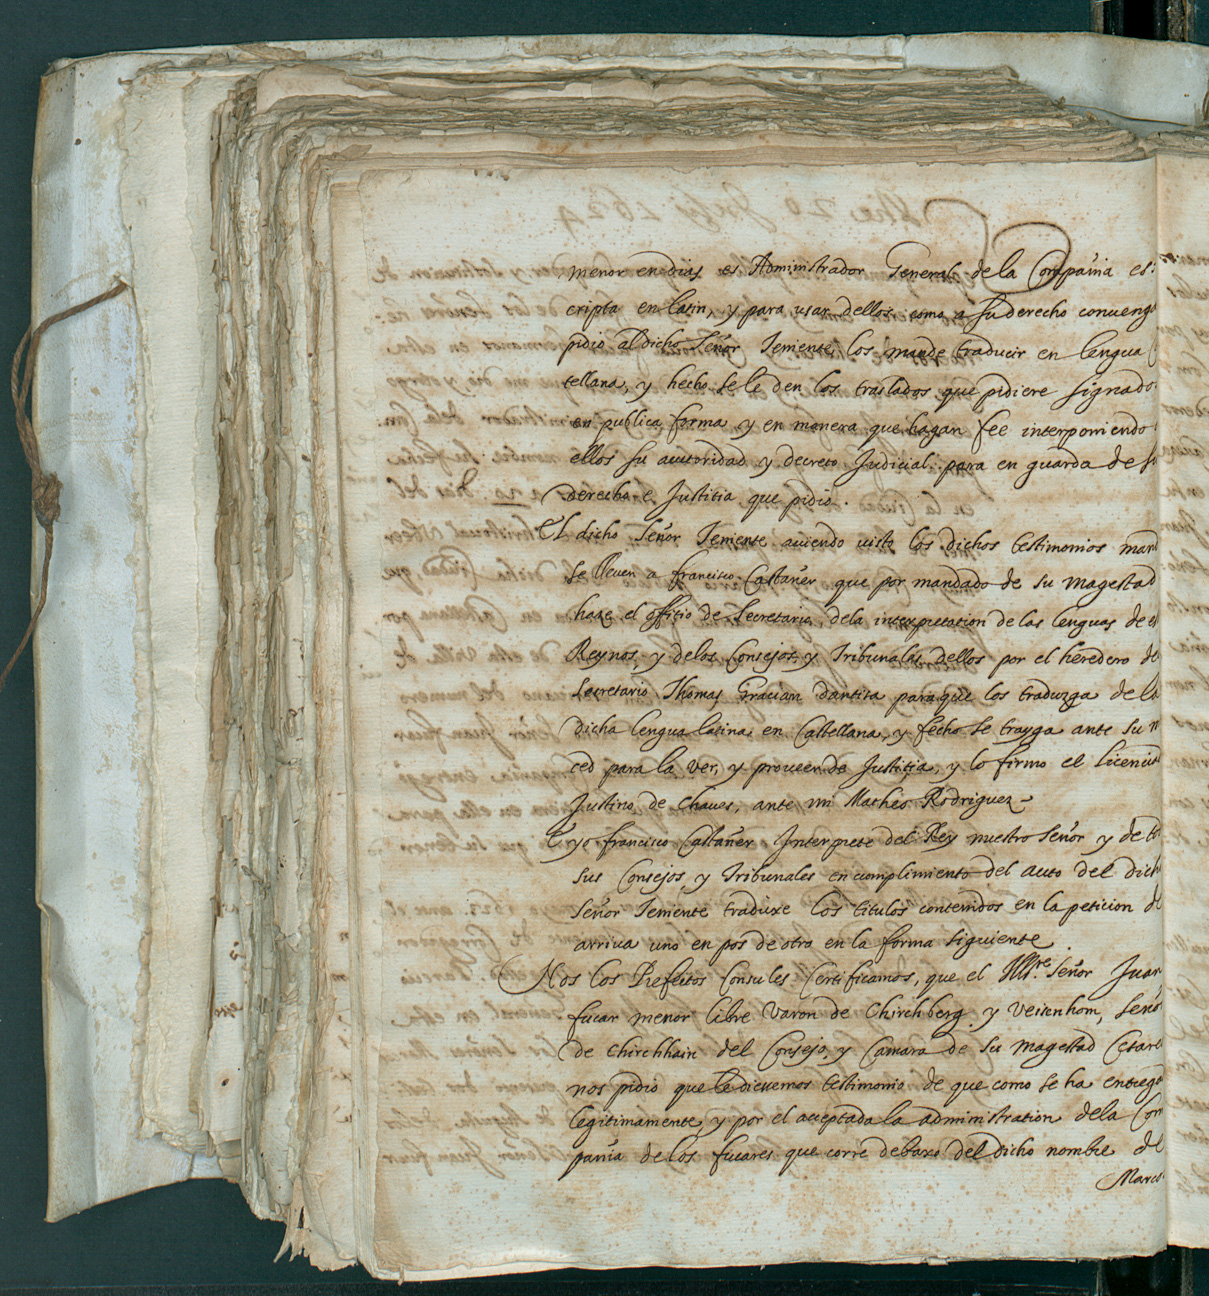 menor en dias es Administrador General de la Compañia es:
cripta en latin, y para usar dellos como a su derecho conueng
pidio al dicho Señor Teniente los mande traducir en lengua
tellana, y hecho se le den los traslados que pidiere signado
en publica forma y en manera que hagan fee interponiendo
ellos su autoridad y decreto Judicial para en guarda de s
derecho e Justitia que pidio.
El dicho Señor Teniente auiendo visto los dichos testimonios mand
se lleuen a francisco Castañer que por mandado de su Magestad
haze el offitio de Secretario dela interpretation de las lenguas de e
Reynos, y delos Consejos, y Tribunales dellos por el heredero de
Secretario Thomas Gracian dantisa paraque los traduzga de la
dicha lengua latina en Castellana, y fecho se trayga ante su m
ced para la ver, y proveer de Justitia, y lo firmo el licencia
Justino de Chaues, ante mi Matheo Rodriguez
E yo francisco Castañer Interprete del Rey nuestro Señor y de to
sus Consejos y Tribunales en cumplimiento del auto del dich
Señor Teniente traduxe los titulos contenidos en la peticion de
arriua uno en pos de otro en la forma siguiente.
Nos los Prefectos Consules Certificamos, que el Ill.re Señor Juan
fucar menor libre Varon de Chirchberg y Veisenhorn, Seño
de Chirchhain del Consejo, y Camara de su Magestad Cesare
nos pidio que le diessemos testimonio de que como se ha entrego
legitimamente, y por el acceptada la administration dela Com
pañia de los fucares que corre debaxo del dicho nombre de
Marcos